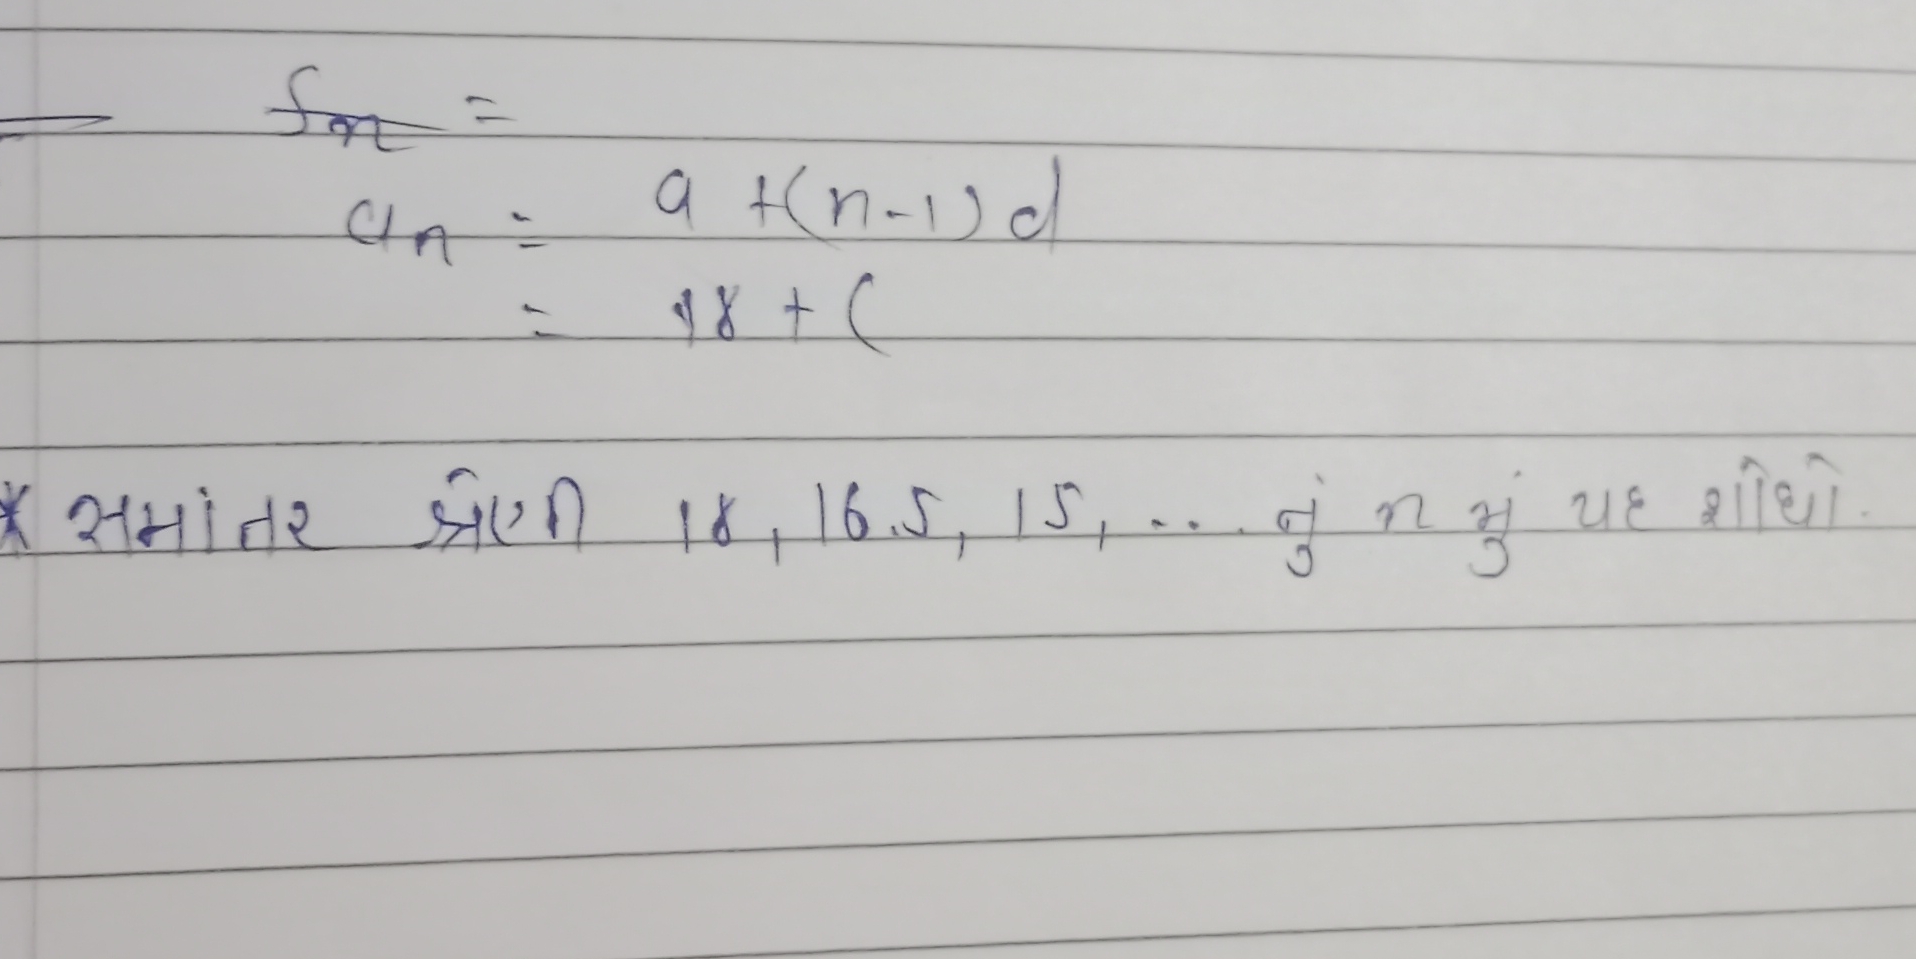 Sn =
an = a + (n-1) d
= 18 + (
* સમાંતર શ્રેણી 18, 16.5, 15, ... નું n મું પદ શોધો.